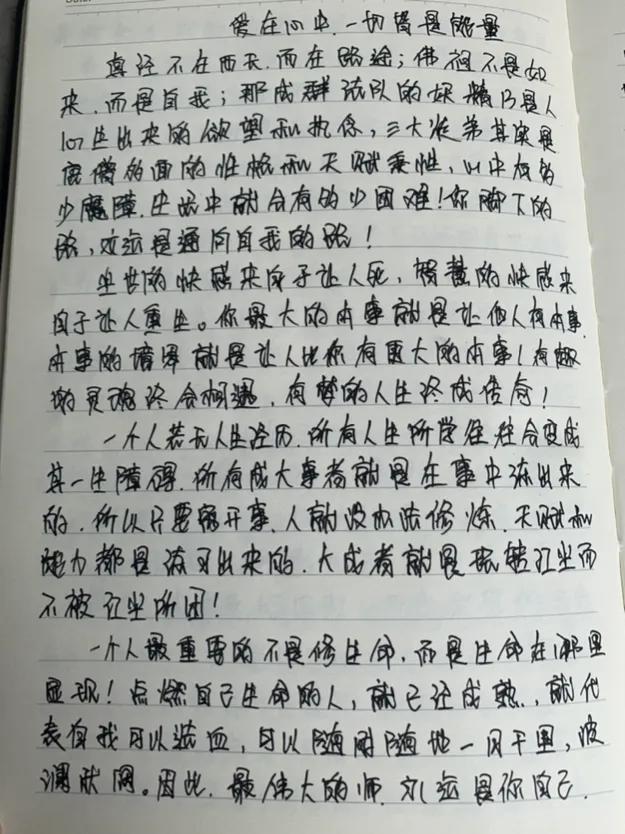 爱在心中.一切皆是能量
真经不在西天.而在路途；佛祖不是如
来.而是自我；那成群结队的妖精乃是人
心生出来的欲望和执念，三大徒弟其实是
唐僧的面的性格和天赋秉性，心中有多
少魔障.生活中就会有多少困难！你脚下的
路，永远是通向自我的路！
的快感来自于让人死，智慧的快感来
自于让人重生。你最大的本事就是让他人有本事.
本事的境界就是让人比你有更大的本事！有趣
的灵魂终会相遇，有梦的人生终成传奇！
一个人若无人生经历.所有人生所学往往会变成
其一生障碍.所有成大事者就是在事中练出来
的.所以只要离开事.人就没办法修炼.天赋和
能力都是练习出来的.大成者就是玩转红尘而
不被红尘所困！
一个人最重要的不是修生命，而是生命在那里
显现！点燃自己生命的人，就已经成熟.，就代
表自我可以造血，可以随时随地一日千里，波
澜状阔。因此.最伟大的师.永远是你自己.